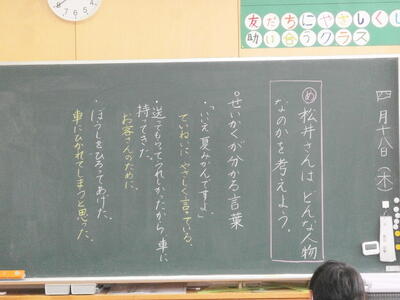 友だちにやさしくし
助け合うクラス
四月十八日(木)
め 松井さんは、どんな人物
なのかを考えよう。
○せいかくが分かる言葉
・「いいえ、夏みかんですよ。」
ていねいに、やさしく言っている。
・送ってもらってうれしかったから車に
持ってきた。
お客さんのために、
・ぼうしをひろってあげた。
車にひかれてしまうと思った。